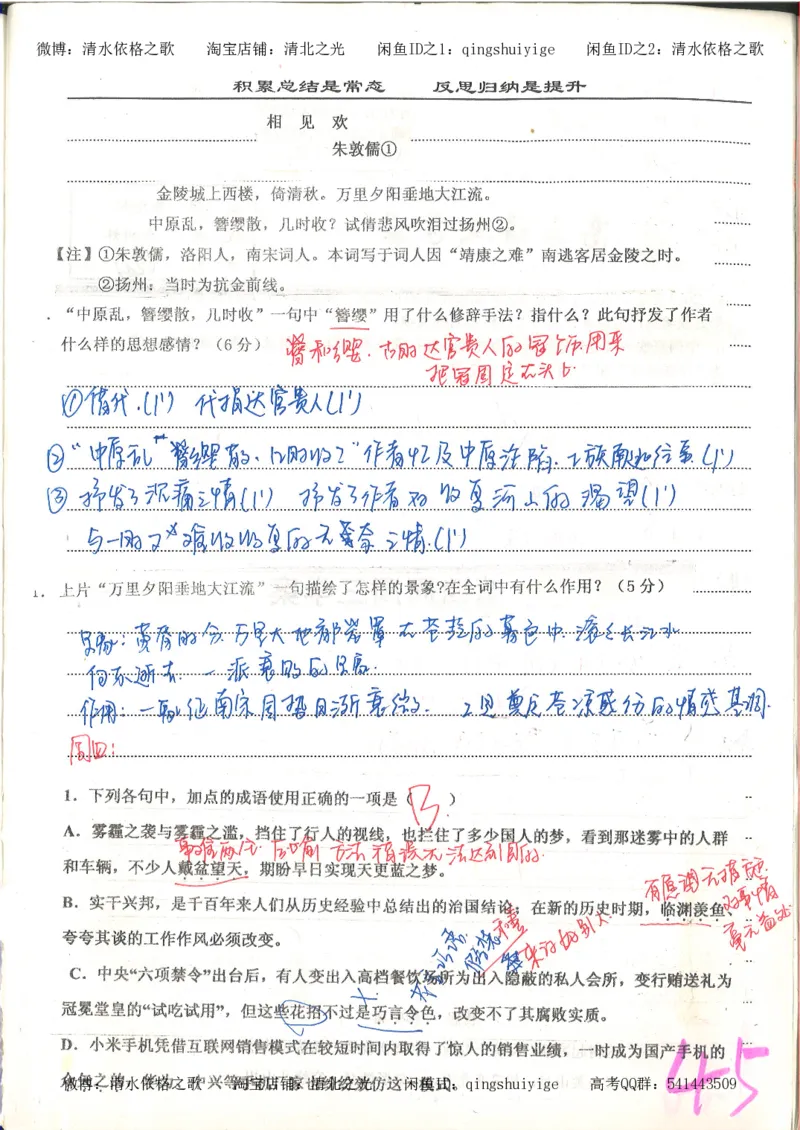 微博：清水依格之歌 淘宝店铺：清北之光 闲鱼ID之1：qingshuiyige 闲鱼ID之2：清水依格之歌
积累总结是常态 反思归纳是提升
相 见 欢
朱敦儒①
金陵城上西楼，倚清秋。万里夕阳垂地大江流。
中原乱，簪缨散，几时收？试倩悲风吹泪过扬州②。
【注】①朱敦儒，洛阳人，南宋词人。本词写于词人因“靖康之难”南逃客居金陵之时。
②扬州：当时为抗金前线。
“中原乱，簪缨散，几时收”一句中“簪缨”用了什么修辞手法？指什么？此句抒发了作者
什么样的思想感情？（6分）
簪和缨．古时达官贵人的冠饰．用来
把冠固定在头上．
①借代．(1') 代指达官贵人(1')
②“中原乱”“簪缨散、几时收？”作者忆及中原沦陷．士族南迁往事．(1')
③抒发了沉痛之情(1') 抒发了作者对收复河山的渴望(1')
与一时又难以收复的无奈之情．(1')
1. 上片“万里夕阳垂地大江流”一句描绘了怎样的景象?在全词中有什么作用？（5分）
景象：黄昏时分万里大地都笼罩在苍茫的暮色中．滚滚长江水
向东逝去．一派衰败的景象．
作用：一象征南宋国势日渐衰微． 二是奠定苍凉 的情感基调．
周四：
1．下列各句中，加点的成语使用正确的一项是（ B ）
A．雾霾之袭与雾霾之滥，挡住了行人的视线，也拦住了多少国人的梦，看到那迷雾中的人群
方法 无法达到目的．
和车辆，不少人戴盆望天，期盼早日实现天更蓝之梦。
有愿望无措施
对事情
毫无益处
B．实于兴邦，是千百年来人们从历史经验中总结出的治国结论；在新的历史时期，临渊羡鱼、
夸夸其谈的工作作风必须改变。
C．中央“六项禁令”出台后，有人变出入高档餐饮场所为出入隐蔽的私人会所，变行贿送礼为
冠冕堂皇的“试吃试用”，但这些花招不过是巧言令色，改变不了其腐败实质。
D．小米手机凭借互联网销售模式在较短时间内取得了惊人的销售业绩，一时成为国产手机的
微博：清水依格之歌 淘宝店铺：清北之光 闲鱼ID：qingshuiyige 高考QQ群：541443509
45